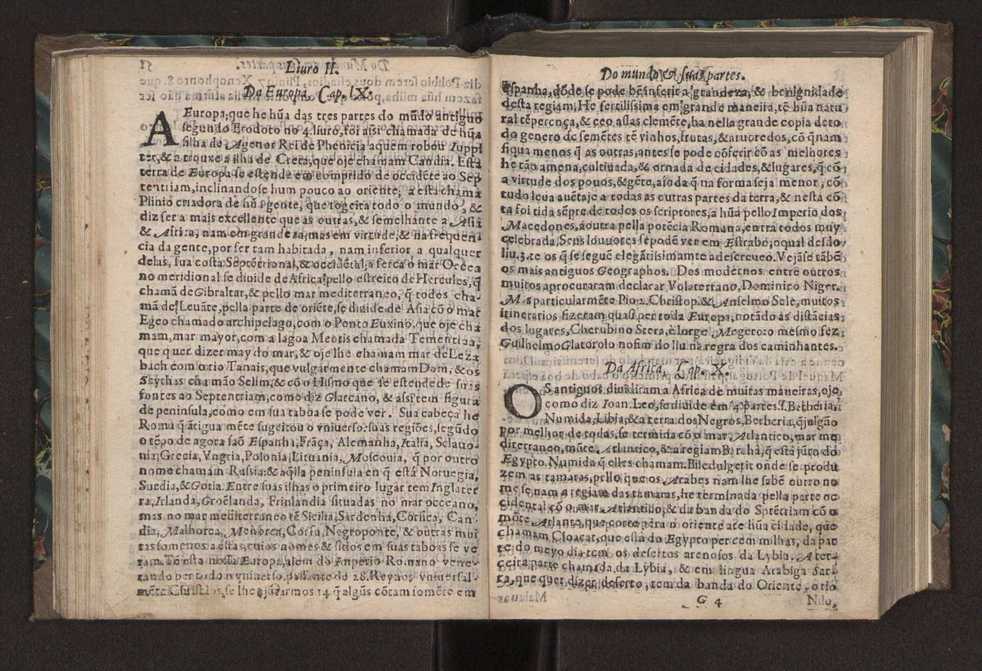 Liuro II.
Da Europa. Cap. IX.
A Europa, que he hũa das tres partes do mũdo antiguo
segundo Erodoto no 4. liuro, foi assi chamada de hũa
filha de Agenor Rei de Phenicia aquem robou Iuppi
ter, & a trouxe a ilha de Creta, que oje chamam Candia. Esta
terra de Europa se estende em comprido de occidẽte ao Sep
tentriam, inclinandose hum pouco ao oriente, a esta chama
Plinio criadora de hũ gente, que sogeita todo o mundo, &
diz ser a mais excellente que as outras, & semelhante a Asia
& Africa, nam em grandeza, mas em virtude, & na frequen
cia da gente, por ser tam habitada, nam inferior a qualquer
delas, sua costa Septẽtrional, & occidẽtal, a serca o mar Ocea
no meridional se diuide de Africa pello estreito de Hercules, q̃
chamã de Gibraltar, & pello mar mediterraneo, q̃ todos cha-
mã de Leuãte, pella parte de oriẽte, se diuide de Asia cõ o mar
Egeo chamado archipelago, com o Ponto Euxino, que oje cha
mam, mar mayor, com a lagoa Meotis chamada Tementiaa,
que quer dizer may do mar, & oje lhe chamam mar de Leza
bach com o rio Tanais, que vulgarmente chamam Dom, & os
Scythas chamão Selim, & cõ o Hismo que se estende de suas
fontes ao Septentriam, como diz Glareano, & assi tem figura
de peninsula, como em sua taboa se pode ver. Sua cabeça he
Roma q̃ ãtigua mẽte sugeitou o vniuerso: suas regiões, segũdo
o tẽpo de agora saõ Espanha, Frãça, Alemanha, Italia, Sclauo-
nia, Grecia, Vngria, Polonia, Lituania, Moscouia, q̃ por outro
nome chamam Russia: & aq̃lla peninsula en q̃ está Noruegia,
Suedia, & Gotia. Entre suas ilhas o primeiro lugar tem Inglater
ra, Irlanda, Groẽlanda, Frinlandia situadas no mar occeano,
mas no mar mediterraneo tẽ Sicilia, Sardenha, Corsica, Can
dia, Malhorca, Menorca, Corfu, Negroponte, & outras mui
tas somenos a estas, cuios nomes & sitios em suas taboas se ve
ram. Tẽ esta nossa Europa, alem do Imperio Romano vene-
rando per todo o vniuerso, passante de 28. Reynos vniuersal-
mẽte Christãos, se lhe ajũtarmos 14 q̃ algũs cõtam somẽte em
Do mundo & suas partes.
Espanha, dõde se pode bẽ inferir a grandeza, & benignidade
desta regiam, He fertilissima em grande maneira, tẽ hũa natu
ral tẽperença, & ceo assas clemẽte, ha nella grande copia de to
do genero de semẽtes tẽ vinhos, frutas, & aruoredos, cõ q̃ nam
fiqua menos q̃ as outras, antes se pode cõferir cõ as melhores
he tãn amena, cultiuada, & ornada de cidades, & lugares, q̃ cõ
a virtude dos pouos, & gẽte, aïoda q̃ na forma seja menor, cõ
tudo leua auẽtaje a todas as outras partes da terra, & nesta cõ
ta foi tida sẽpre de todos os scriptores, a hũa pello Imperio dos
Macedones, a outra pella potẽcia Romana, entra todos muy
celebrada, Seus louuores se podẽ ver em Estrabo, o qual desdo
liu. 3. te os q̃ se seguẽ elegãtissimamẽte a descreueo. Vejãse tãbẽ
os mais antiguos Geographos. Dos modernos entre outros
muitos a procuraram declarar Volaterrano, Dominico Niger.
Mas particularmẽte Pio 2. Christop. & Anselmo Sele, muitos
itinerarios fizeram quasi per toda Europa, notãdo as distãcias
dos lugares, Cherubino Stera, & Iorge Mogeroto mesmo fez,
Guilhelmo Glatorolo no fim do liu na regra dos caminhantes.
Da Africa, Cap. X.
OS antiguos diuidiram a Africa de muitas maneiras, oje,
como diz Ioan. Leo, se diuide em 4 partes. s. Berberia,
Numida, Libia, & a terra dos Negros, Berberia, q̃ julgão
por melhor de todas, se termida cõ o mar, Atlantico, mar me
diterraneo, mõte, Atlantico, & a regiam Baraha, q̃ está juto do
Egypto. Numida q̃ elles chamam. Biledulgerit onde se produ
zem as tamaras, pello que os Arabes nam lhe sabẽ outro no
me se, nam a regiam das tamaras, he terminada pella parte oc
cidental cõ o mar Atlantico, & da banda do Sptẽtriam cõ o
mõte Atlanta, que corre pera o oriente ate hũa cidade, que
chamam Cloacat, que está do Egypto per cem milhas, da par
te do meyo dia tem os desertos arenosos da Lybia. A ter-
ceira parte chamada, da Lybia, & em lingua Arabiga Sarã
ra, que quer dizer deserto, tem da banda do Oriente, o rio
G 4
Nilo,